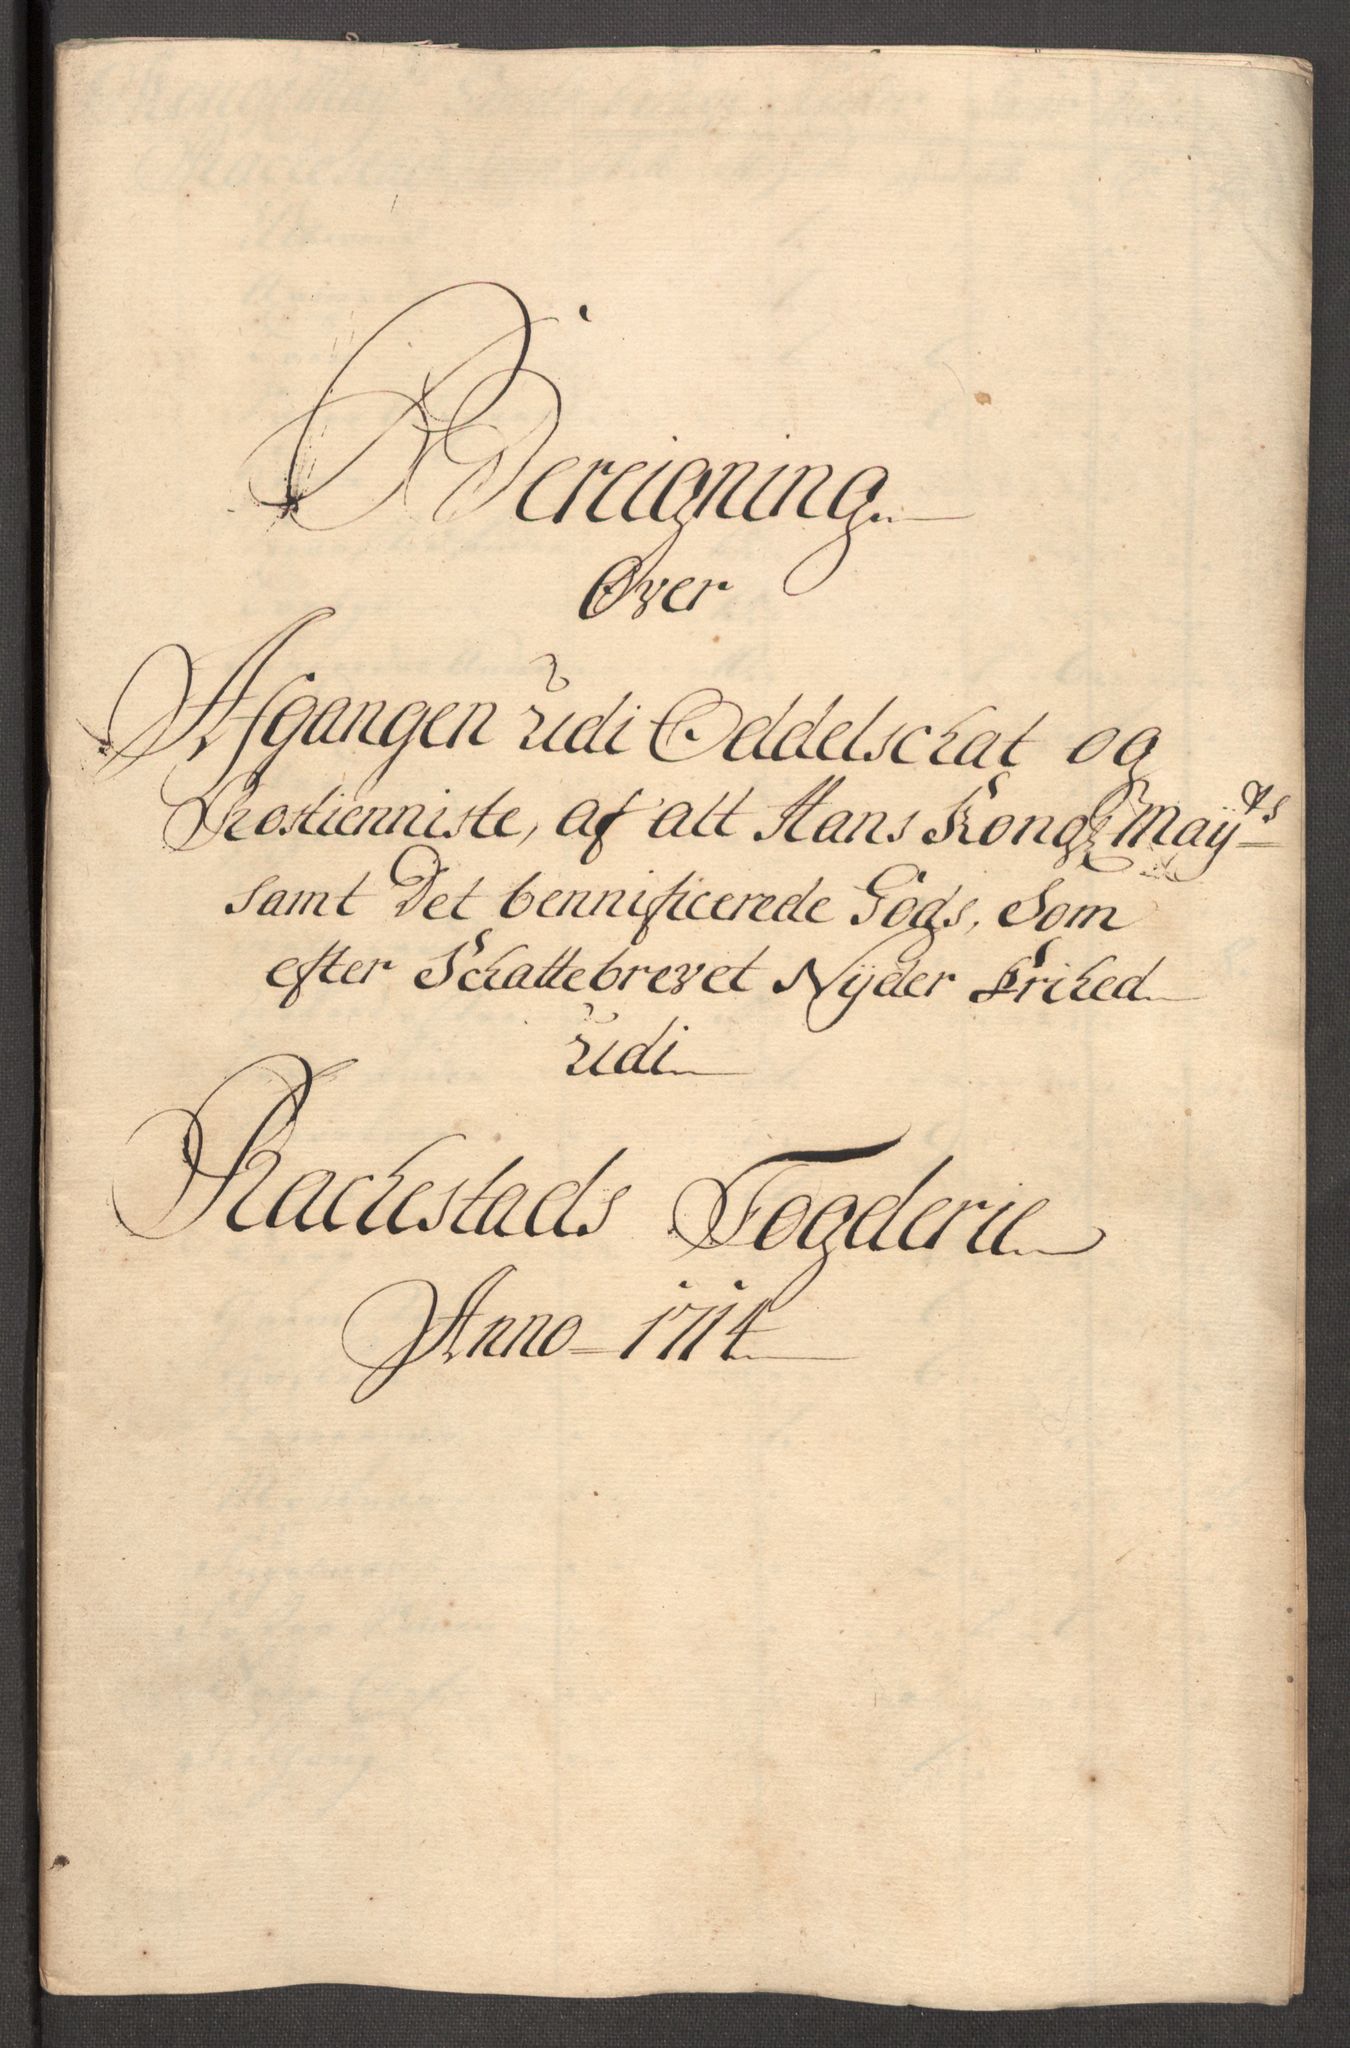 Bereigning
Over
Afgangen udi Oddelschat og
Rostienniste, af alt Hans Kongl Mayts
samt Det bennificerede Gods, Som
efter Schattebrevet Nyder Frihed
udi
Rackestads Fogderie
Anno 1714